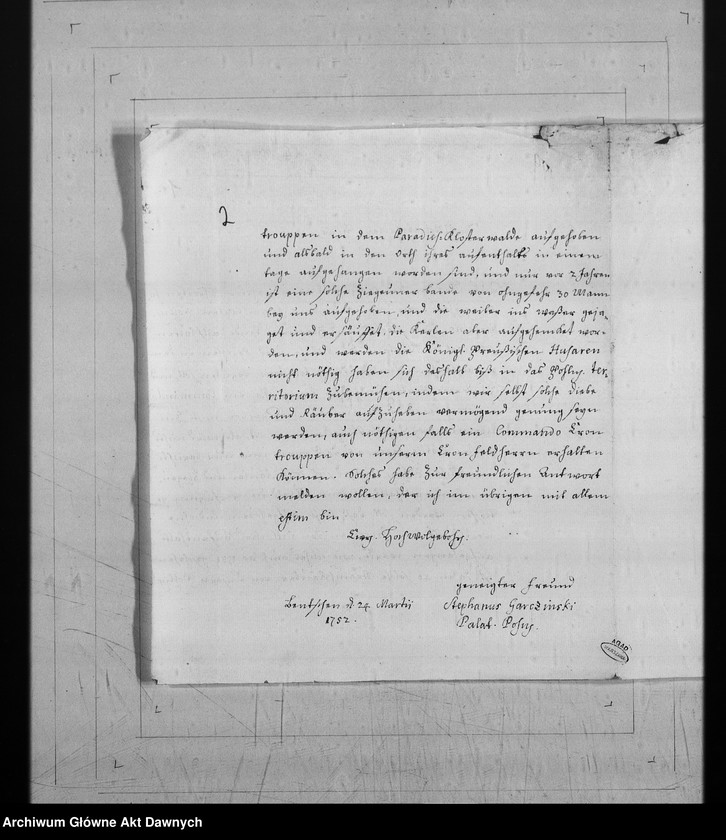 2
trouppen in dem Paradies. Klosterwalde aufgehoben
und alsbald in den Orth ihres aufenthalts in einem
tage aufgefangen worden sind, und nur vor 2 Jahren
ist eine solche Ziegeuner bande von ohngefehr 30 Mann
bey uns aufgehoben, und die weiber ins waßer geja-
get und ersäuffet, die Kerlen aber aufgehencket wor-
den, und werden die Königl. Preußischen Husaren
nicht nöthig haben sich deshalb biß in das Pohln. ter-
ritorium zubemühen, indem wir selbst solche diebe
und Räuber aufzuheben vermögend genung seyn
werden, auch nöthigen falls ein Commando Cron
trouppen von unserm Cron feldherrn erhalten
können. Solches habe zur freundlichen Antwort
melden wollen, der ich im übrigen mit allem
estim bin
Ewr. Hochwolgebohr.
geneigter freund
Bentschen d. 24 Martii
Stephanus Garczinski
1752.
Palat. Posn.
AGAD
Archiwum Główne Akt Dawnych